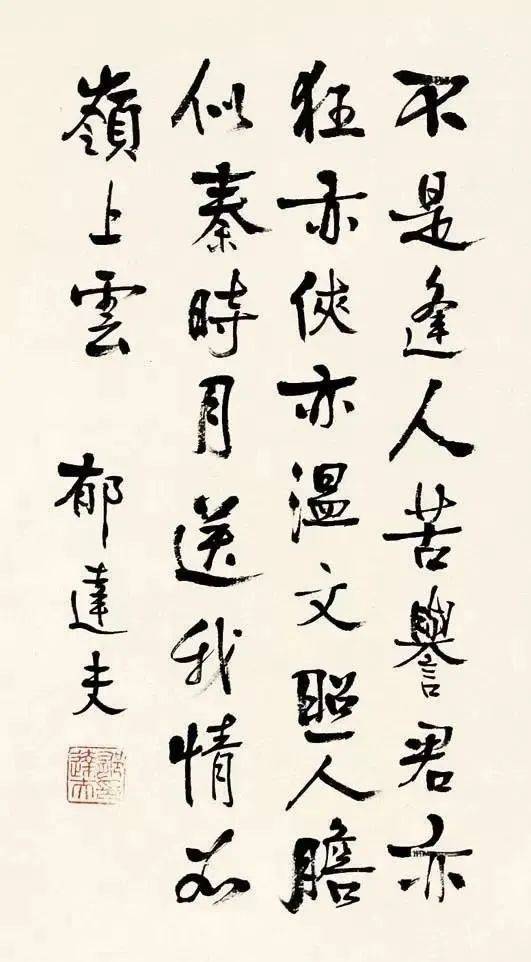 不是逢人苦譽君亦
狂亦俠亦温文照人膽
似秦時月送我情如
嶺上雲
郁達夫